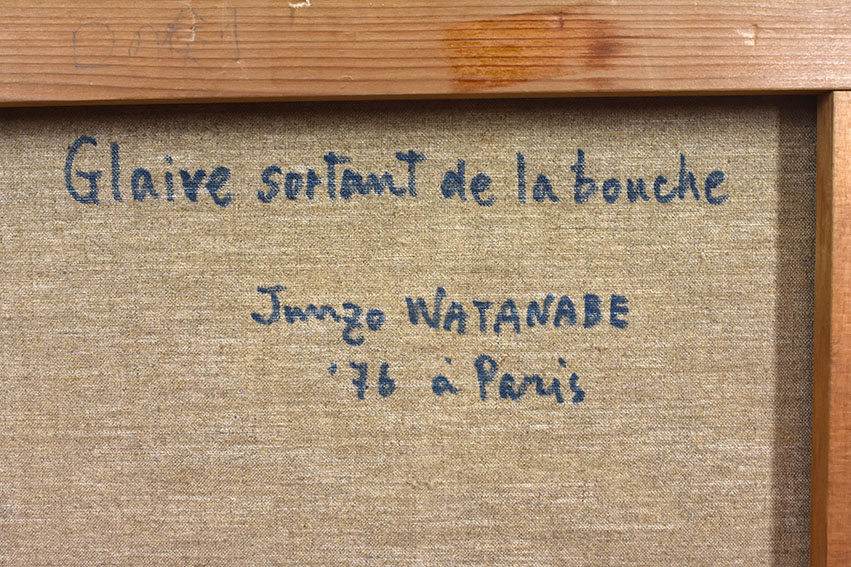 Glaive sortant de la bouche
Junzo WATANABE
'76 à Paris